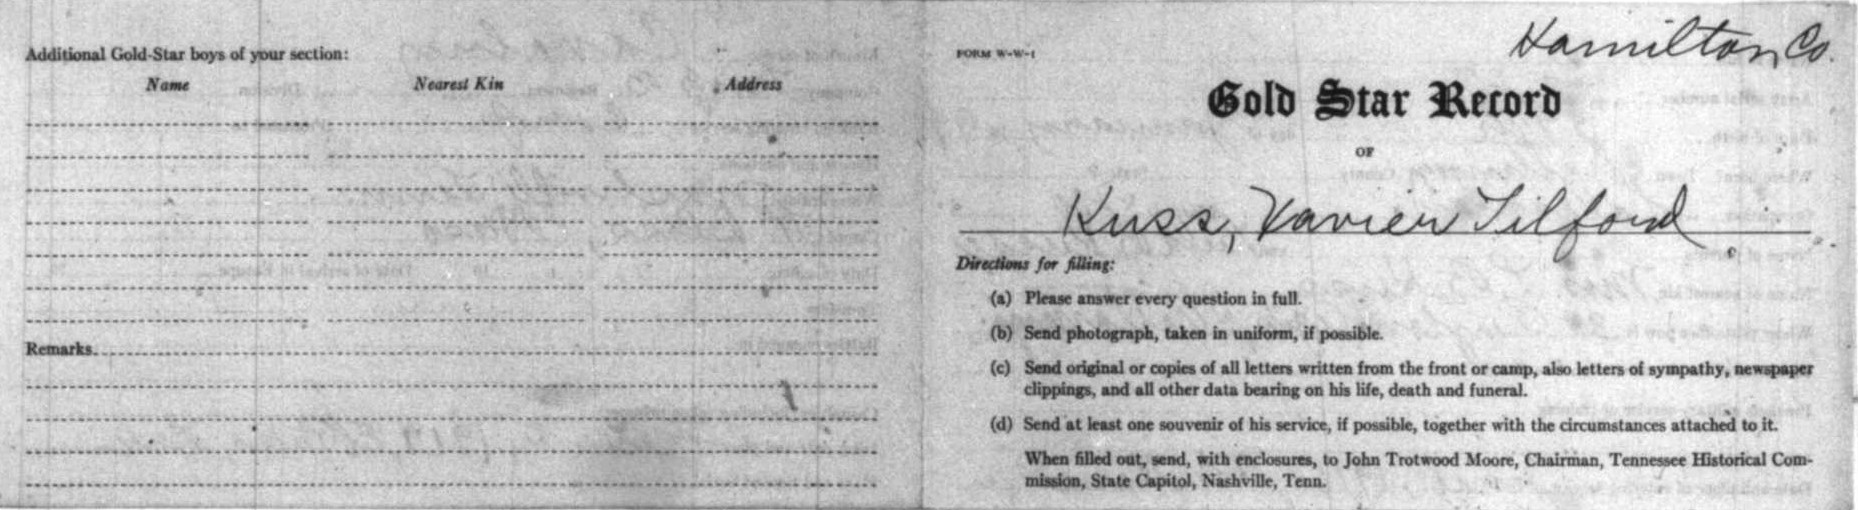 Additional Gold-Star boys of your section:
Name Nearest Kin Address
Remarks
Hamilton Co.
FORM W-W-1
Gold Star Record
OF
Kuss, Xavier Tilford
Directions for filling:
(a) Please answer every question in full.
(b) Send photograph, taken in uniform, if possible.
(c) Send original or copies of all letters written from the front or camp, also letters of sympathy, newspaper
clippings, and all other data bearing on his life, death and funeral.
(d) Send at least one souvenir of his service, if possible, together with the circumstances attached to it.
When filled out, send, with enclosures, to John Trotwood Moore, Chairman, Tennessee Historical Com-
mission, State Capitol, Nashville, Tenn.